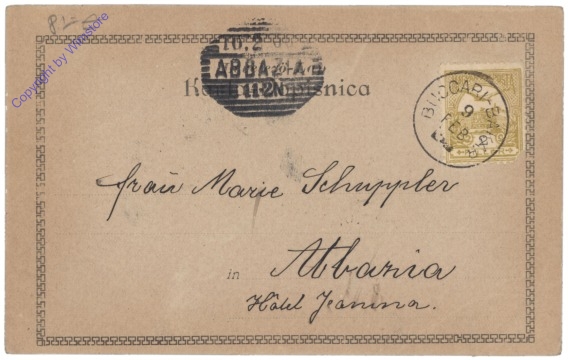 Copyright by WinStore
10.2
ABBAZIA
11-2N
BUCCARI
9
FEB
Frau Marie Schuppler
in
Abbazia
Hôtel Jeanina.